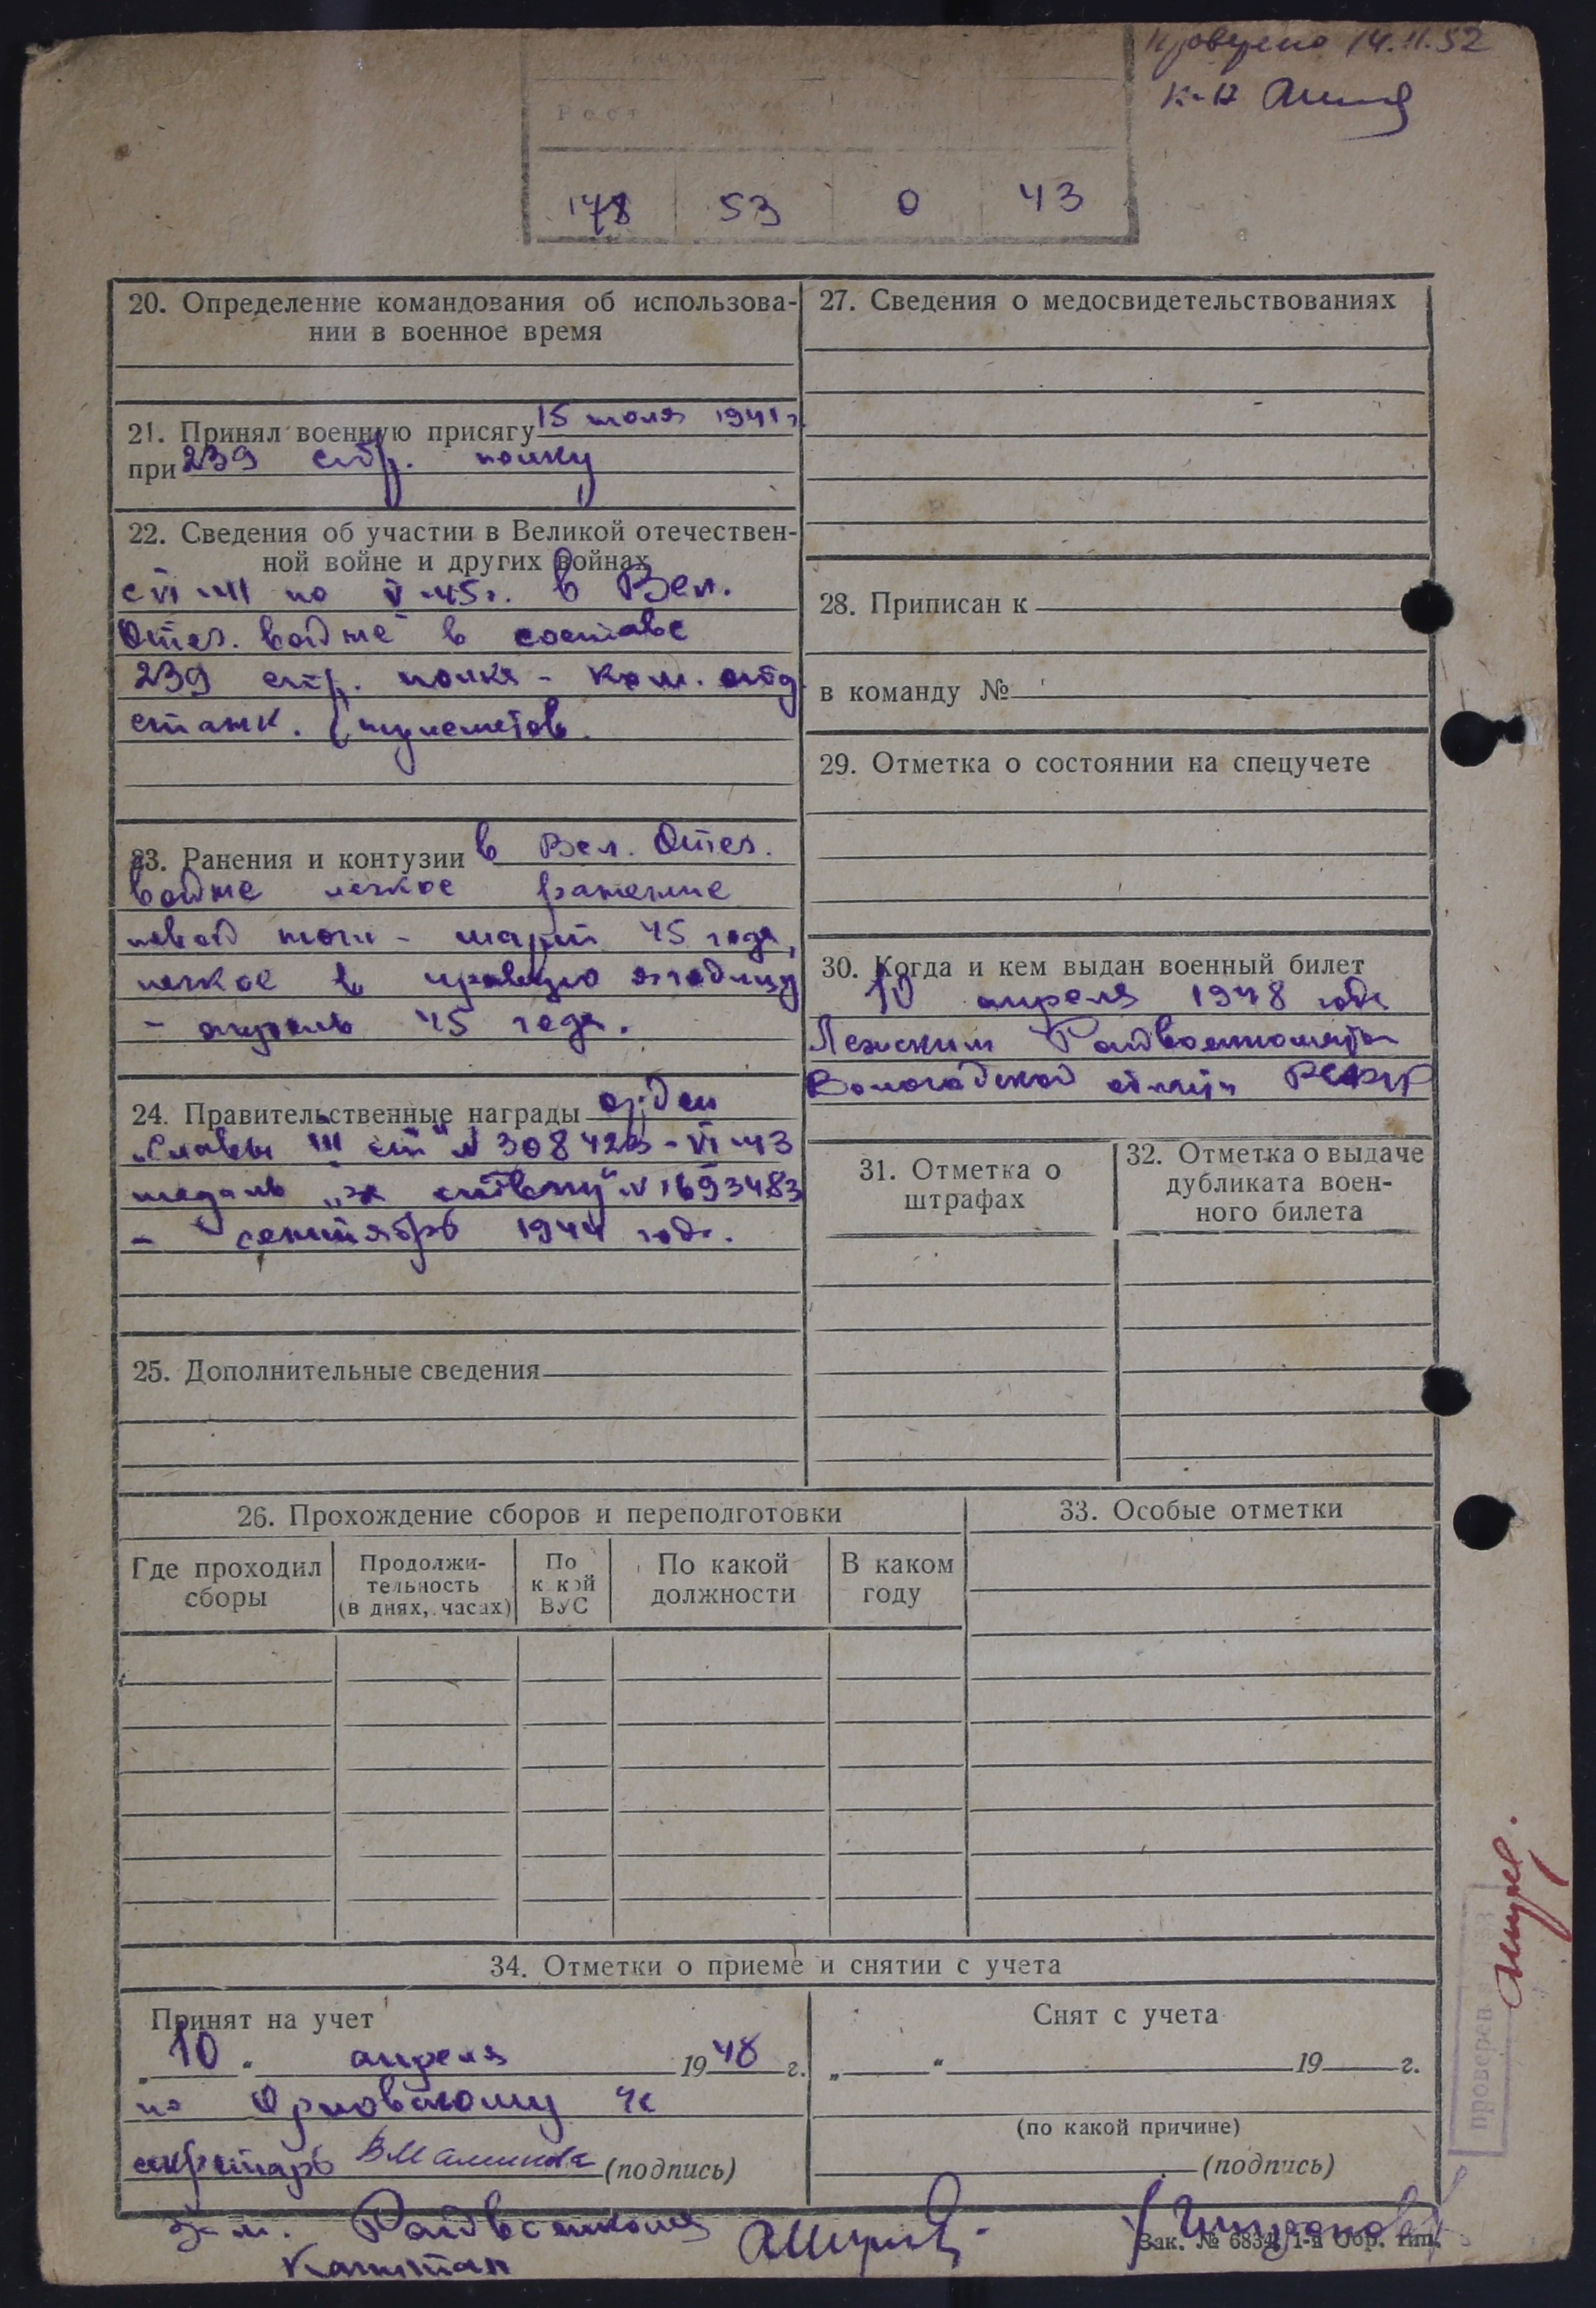 Проверено 14.11.52
к-н
Рост
178 53 0 43
20. Определение командования об использова-
нии в военное время
21. Принял военную присягу 15 июля 1941 г.
при 239 стр. полку
22. Сведения об участии в Великой отечествен-
ной войне и других войнах
с VI-41 по V-45г. в Вел.
Отеч. войне в составе
239 стр. полка - ком. отд
станк. пулеметов.
23. Ранения и контузии в Вел. Отеч.
войне легкое ранение
левой ноги - март 45 года,
легкое в правую ягодицу
- апрель 45 года.
24. Правительственные награды орден
„Славы III ст" № 308423 - VI-43
медаль „за отвагу" № 1693483
- сентябрь 1944 года.
25. Дополнительные сведения
27. Сведения о медосвидетельствованиях
28. Приписан к
в команду №
29. Отметка о состоянии на спецучете
30. Когда и кем выдан военный билет
10 апреля 1948 года
Лежским Райвоенкоматом
Вологодской области РСФСР
31. Отметка о
штрафах
32. Отметка о выдаче
дубликата воен-
ного билета
26. Прохождение сборов и переподготовки
Где проходил
сборы
Продолжи-
тельность
(в днях, часах)
По
к кой
ВУС
По какой
должности
В каком
году
33. Особые отметки
34. Отметки о приеме и снятии с учета
Принят на учет
„10" апреля 1948 г.
по Орловскому
секретарь (подпись)
Снят с учета
„ " 19 г.
(по какой причине)
(подпись)
Райвоенкома
Капитан
Зак. № 6834 1-я Обр. тип.
проверен